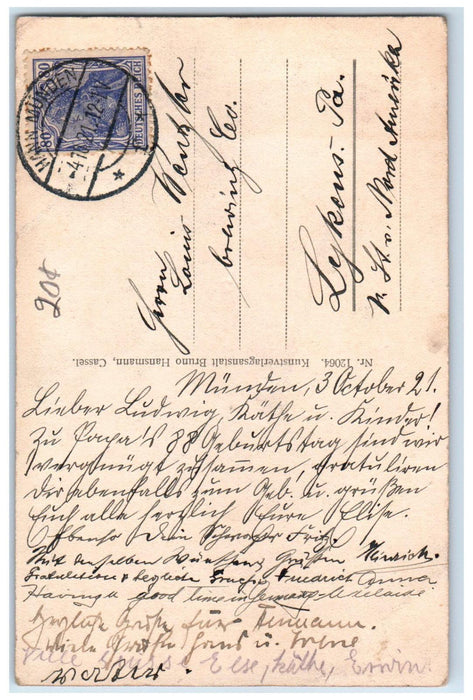 80 80
DEUTSCHES REICH
HANN. MÜNDEN
20¢
Herrn
Louis Wentzler
brewing Co.
Lykens. Pa.
N. St. v. Nord Amerika
Nr. 12064. Kunstverlagsanstalt Bruno Hansmann, Cassel.
Münden, 3 October 21.
Lieber Ludwig Käthe u. Kinder!
Zu Papa's 88 Geburtstag sind wir
vergnügt zusamen, gratuliren
Dir ebenfalls zum Geb. u. grüßen
Euch alle herzlich Eure Elise.
Ebenso Dein Schwager Fritz.
Mit denselben Wünschen Grüßen Heinrich.
Gratulation & Friedrich Anna
Having a good time in Germany Adelaide
Herzliche Grüße Hermann.
Viele Grüße Hans u. Irene
Viele Grüsse Else, Käthe, Erwin.